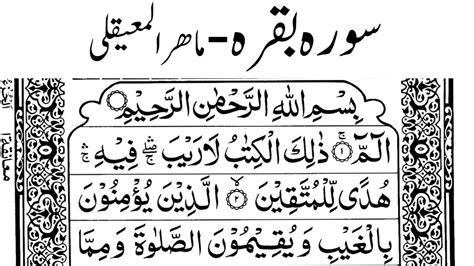 سورہ بقرہ - ماھر المعیقلی
بِسْمِ اللهِ الرَّحْمٰنِ الرَّحِيْمِ
الٓمّٓ ۚ ذٰلِكَ الْكِتٰبُ لَا رَيْبَ ۛ فِيْهِ ۛ
هُدًى لِّلْمُتَّقِيْنَ ۙ۲ الَّذِيْنَ يُؤْمِنُوْنَ
بِالْغَيْبِ وَيُقِيْمُوْنَ الصَّلٰوةَ وَمِمَّا